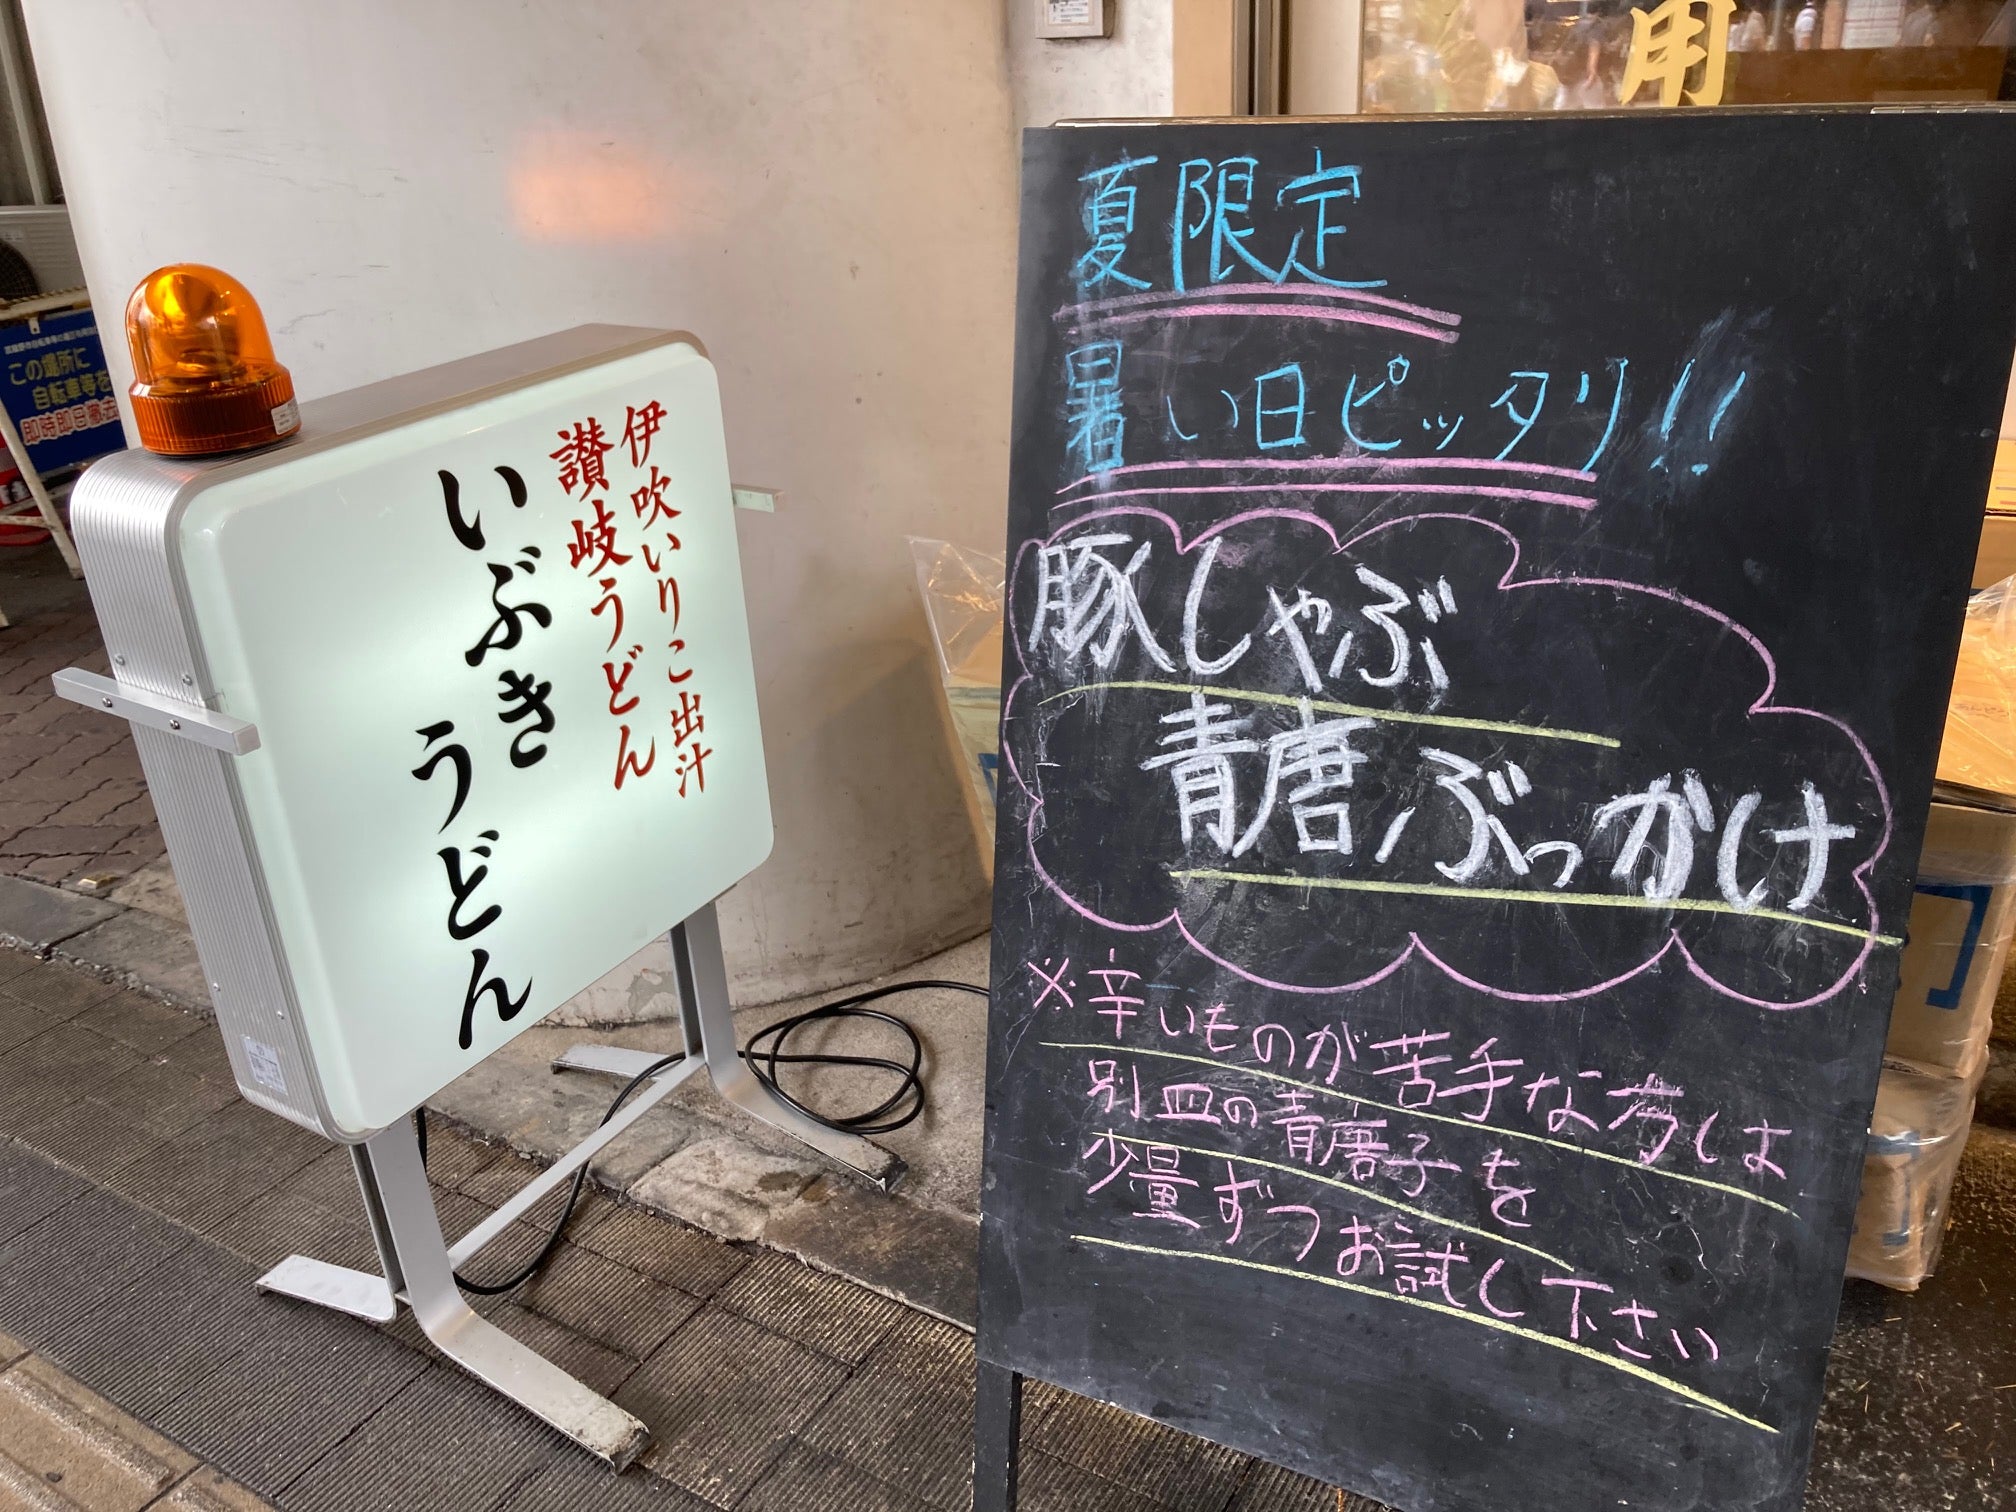 伊吹いりこ出汁
讃岐うどん
いぶき
うどん
この場所に
自転車等を
即時即日撤去
用
夏限定
暑い日ピッタリ!!
豚しゃぶ
青唐ぶっかけ
※辛いものが苦手な方は
別皿の青唐子を
少量ずつお試し下さい